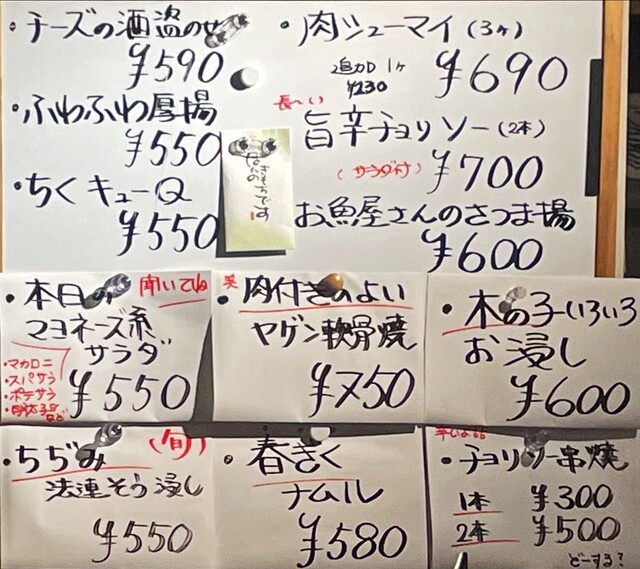 ・チーズの酒盗のせ
¥590
・ふわふわ厚揚
¥550
・ちくキューQ
¥550
・肉シューマイ(3ヶ)
追加1ヶ
¥230
¥690
長〜い
旨辛チョリソー(2本)
(サラダ付)
¥700
お魚屋さんのさつま揚
¥600
です
・本日の
聞いてね
マヨネーズ系
サラダ
・マカロニ
・スパサラ
・ポテサラ
¥550
・肉付きのよい
ヤゲン軟骨焼
¥750
・木の子いろいろ
お浸し
¥600
・ちぢみ
(旬)
法連そう浸し
¥550
・春きく
ナムル
¥580
・チョリソー串焼
1本 ¥300
2本 ¥500
どーする?